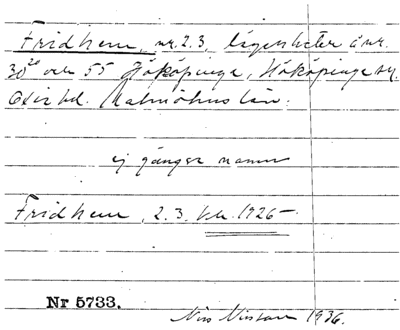 Fridhem, nr. 2.3, lägenheter å nr.
30²⁰ och 55 Hököpinge, Hököpinge sn.
Oxie hd. Malmöhus län.
ej gånger namn
Fridhem, 2.3. 1926-
Nr 5733.
Nils Nilsson 1936.